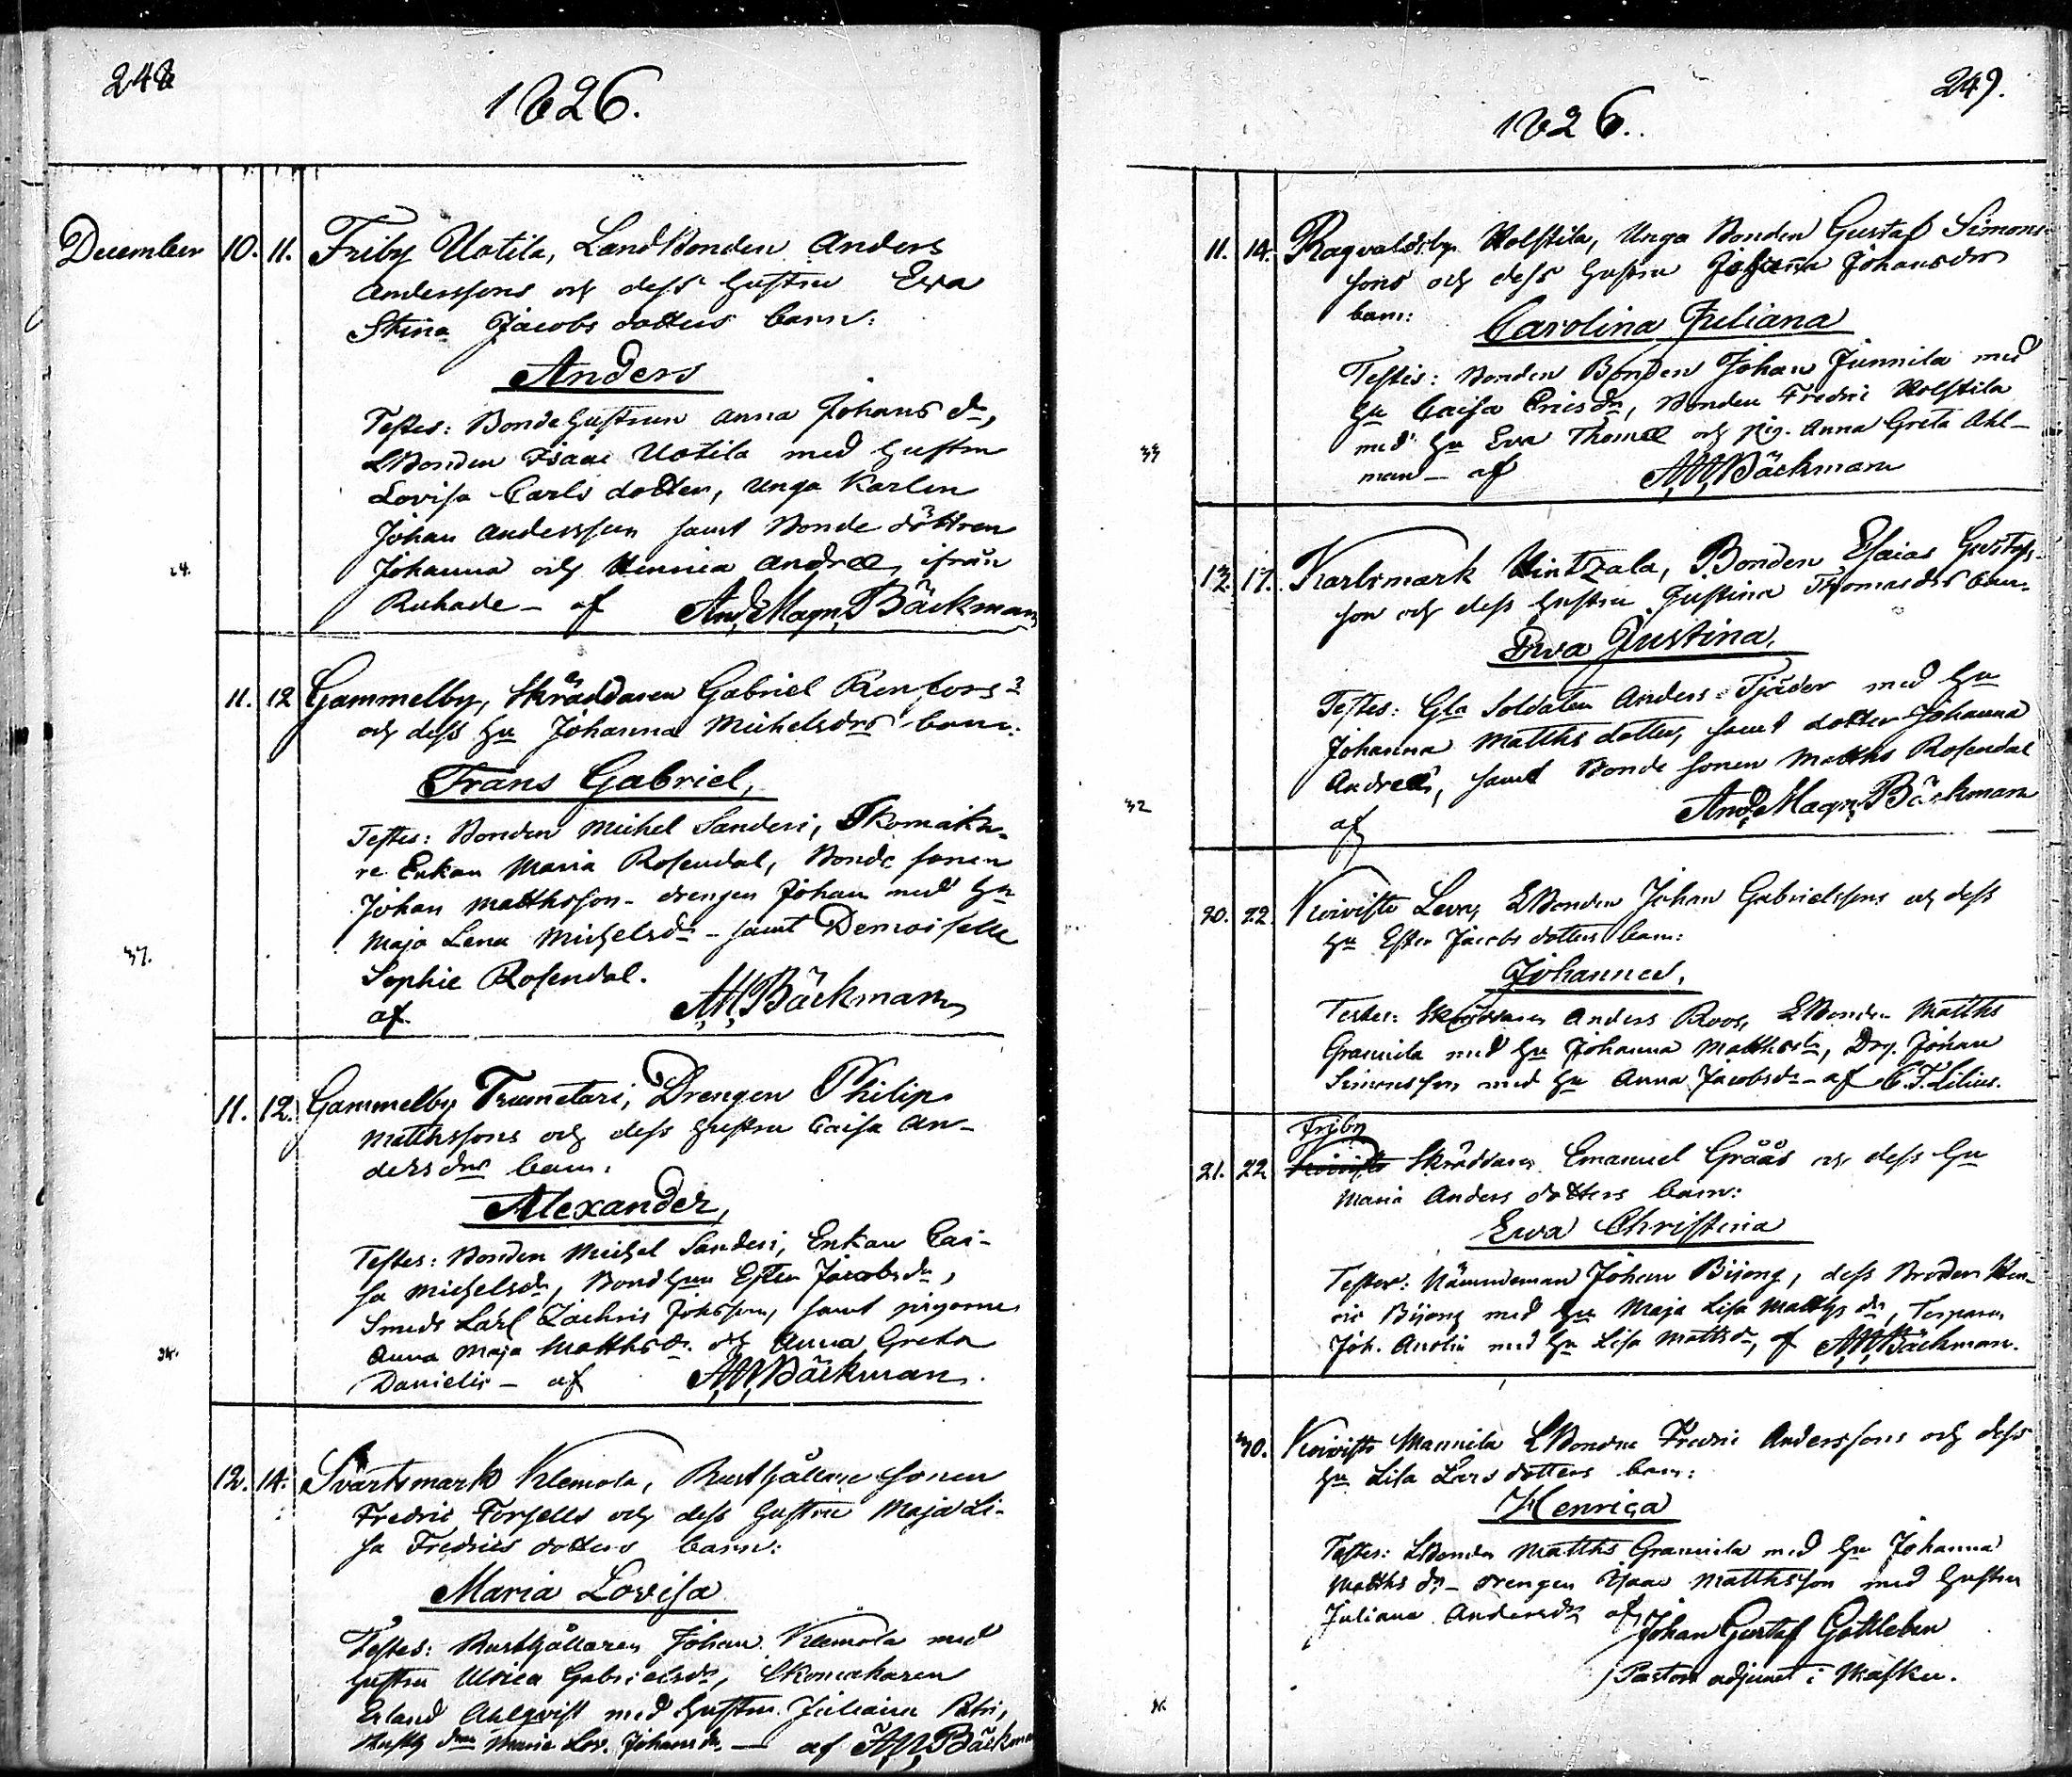 248
1826.
December 10. 11. Friby Uotila, LandBonden Anders
Anderssons och dess hustru Eva
Stina Jacobs dotters barn:
Anders
Testes: Bondehustrun Anna Johans dr,
LBonden Isaac Uotila med hustru
Lovisa Carls dotter, Unga Karlen
Johan Andersson samt Bonde döttren
Johanna och Henrica Andreæ, ifrån
24.
Ruhade – af And. Magn. Bäckman
11. 12 Gammelby, Skräddaren Gabriel Renfors
och dess hu Johanna Michelsdrs barn:
Frans Gabriel,
Testes: Bonden Michel Sanderi, Skomaka-
re Enkan Maria Rosendal, Bonde sonen
Johan Matthsson – drengen Johan med hu
Maja Lena Michelsdr – samt Demoiselle
37.
Sophie Rosendal.
af A.M. Bäckman
11. 12. Gammelby Trumetari, Drengen Philip
Matthssons och dess hustru Caisa An-
ders drs barn:
Alexander,
Testes: Bonden Michel Sanderi, Enkan Cai-
sa Michelsdr, Bondhun Ester Jacobsdr,
Smeds Lärl Zachris Johsson, samt pigorne
Anna Maja Matthsdr. och Anna Greta
Danielis – af A.M. Bäckman.
12. 14. Svartsmark Klemola, Rusthållare sonen
Fredric Forsells och dess hustru Maja Li-
sa Fredrics dotters barn:
Maria Lovisa
Testes: Rusthållaren Johan Klemola med
hustru Ulrica Gabrielsdr, Skomakaren
Erland Ahlqvist med hustru Juliana Petri,
Maria Lov. Johansdr. — af A.M. Bäckman
249.
1826.
11. 14. Ragvaldsby Holstila, Unga Bonden Gustaf Simons-
sons och dess hustru Johanna Johansdrs
barn: Carolina Juliana
Testes: Bonden Bonden Johan Junnila med
hu Caisa Ericsdr, Bonden Fredric Holstila
33
med hu Eva Thomæ och pig. Anna Greta Ahl-
man – af A.M. Bäckman
12. 17. Karlsmark Hintzala, Bonden Esaias Gustafs-
son och dess hustru Justina Thomasdrs barn.
Eva Justina,
Testes: Gla Soldaten Anders Tjäder med hu
Johanna Matths dotter, samt dotter Johanna
Andreæ, samt Bonde sonen Matths Rosendal
32
af And. Magn. Bäckman
20. 22. Koivisto Levä, LBonden Johan Gabrielssons och dess
hu Ester Jacobs dotters barn:
Johannes.
Testes: Skräddaren Anders Roos, LBonden Matths
Grannila med hu Johanna Matthsdr, Drg. Johan
Simonsson med hu Anna Jacobsdr – af C.F. Lilius.
Friby
21. 22 Koivisto Skräddaren Emanuel Grääs och dess hu
Maria Anders dotters barn:
Eva Christina
Testes: Nämndeman Johan Bijong, dess Broder Hen-
ric Bijong med hu Maja Lisa Matths dr,
Joh. Anolin med hu Lisa Mattsdr, af A.M. Bäckman.
30. Koivisto Mannila LBonden Fredric Anderssons och dess
hu Lisa Lars dotters barn:
Henrica
Testes: LBonden Matths Grannila med hu Johanna
Matths dr – drengen Isaac Matthsson med hustru
Juliana Andersdr af Johan Gustaf Gottleben
Pastors adjunct i Masku.